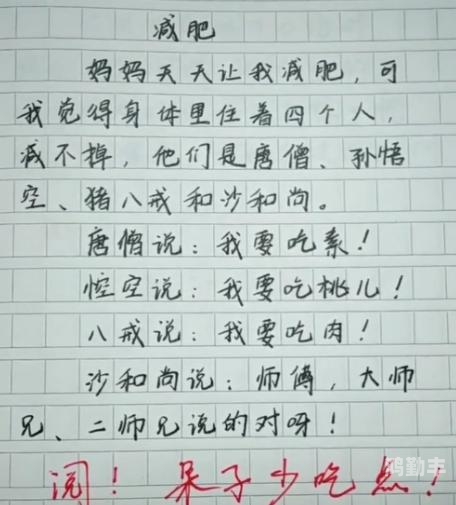 减肥
妈妈天天让我减肥，可
我觉得身体里住着四个人，
减不掉，他们是唐僧、孙悟
空、猪八戒和沙和尚。
唐僧说：我要吃素！
悟空说：我要吃桃儿！
八戒说：我要吃肉！
沙和尚说：师傅，大师
兄、二师兄说的对呀！
阅！呆子少吃点！
鸿勤丰